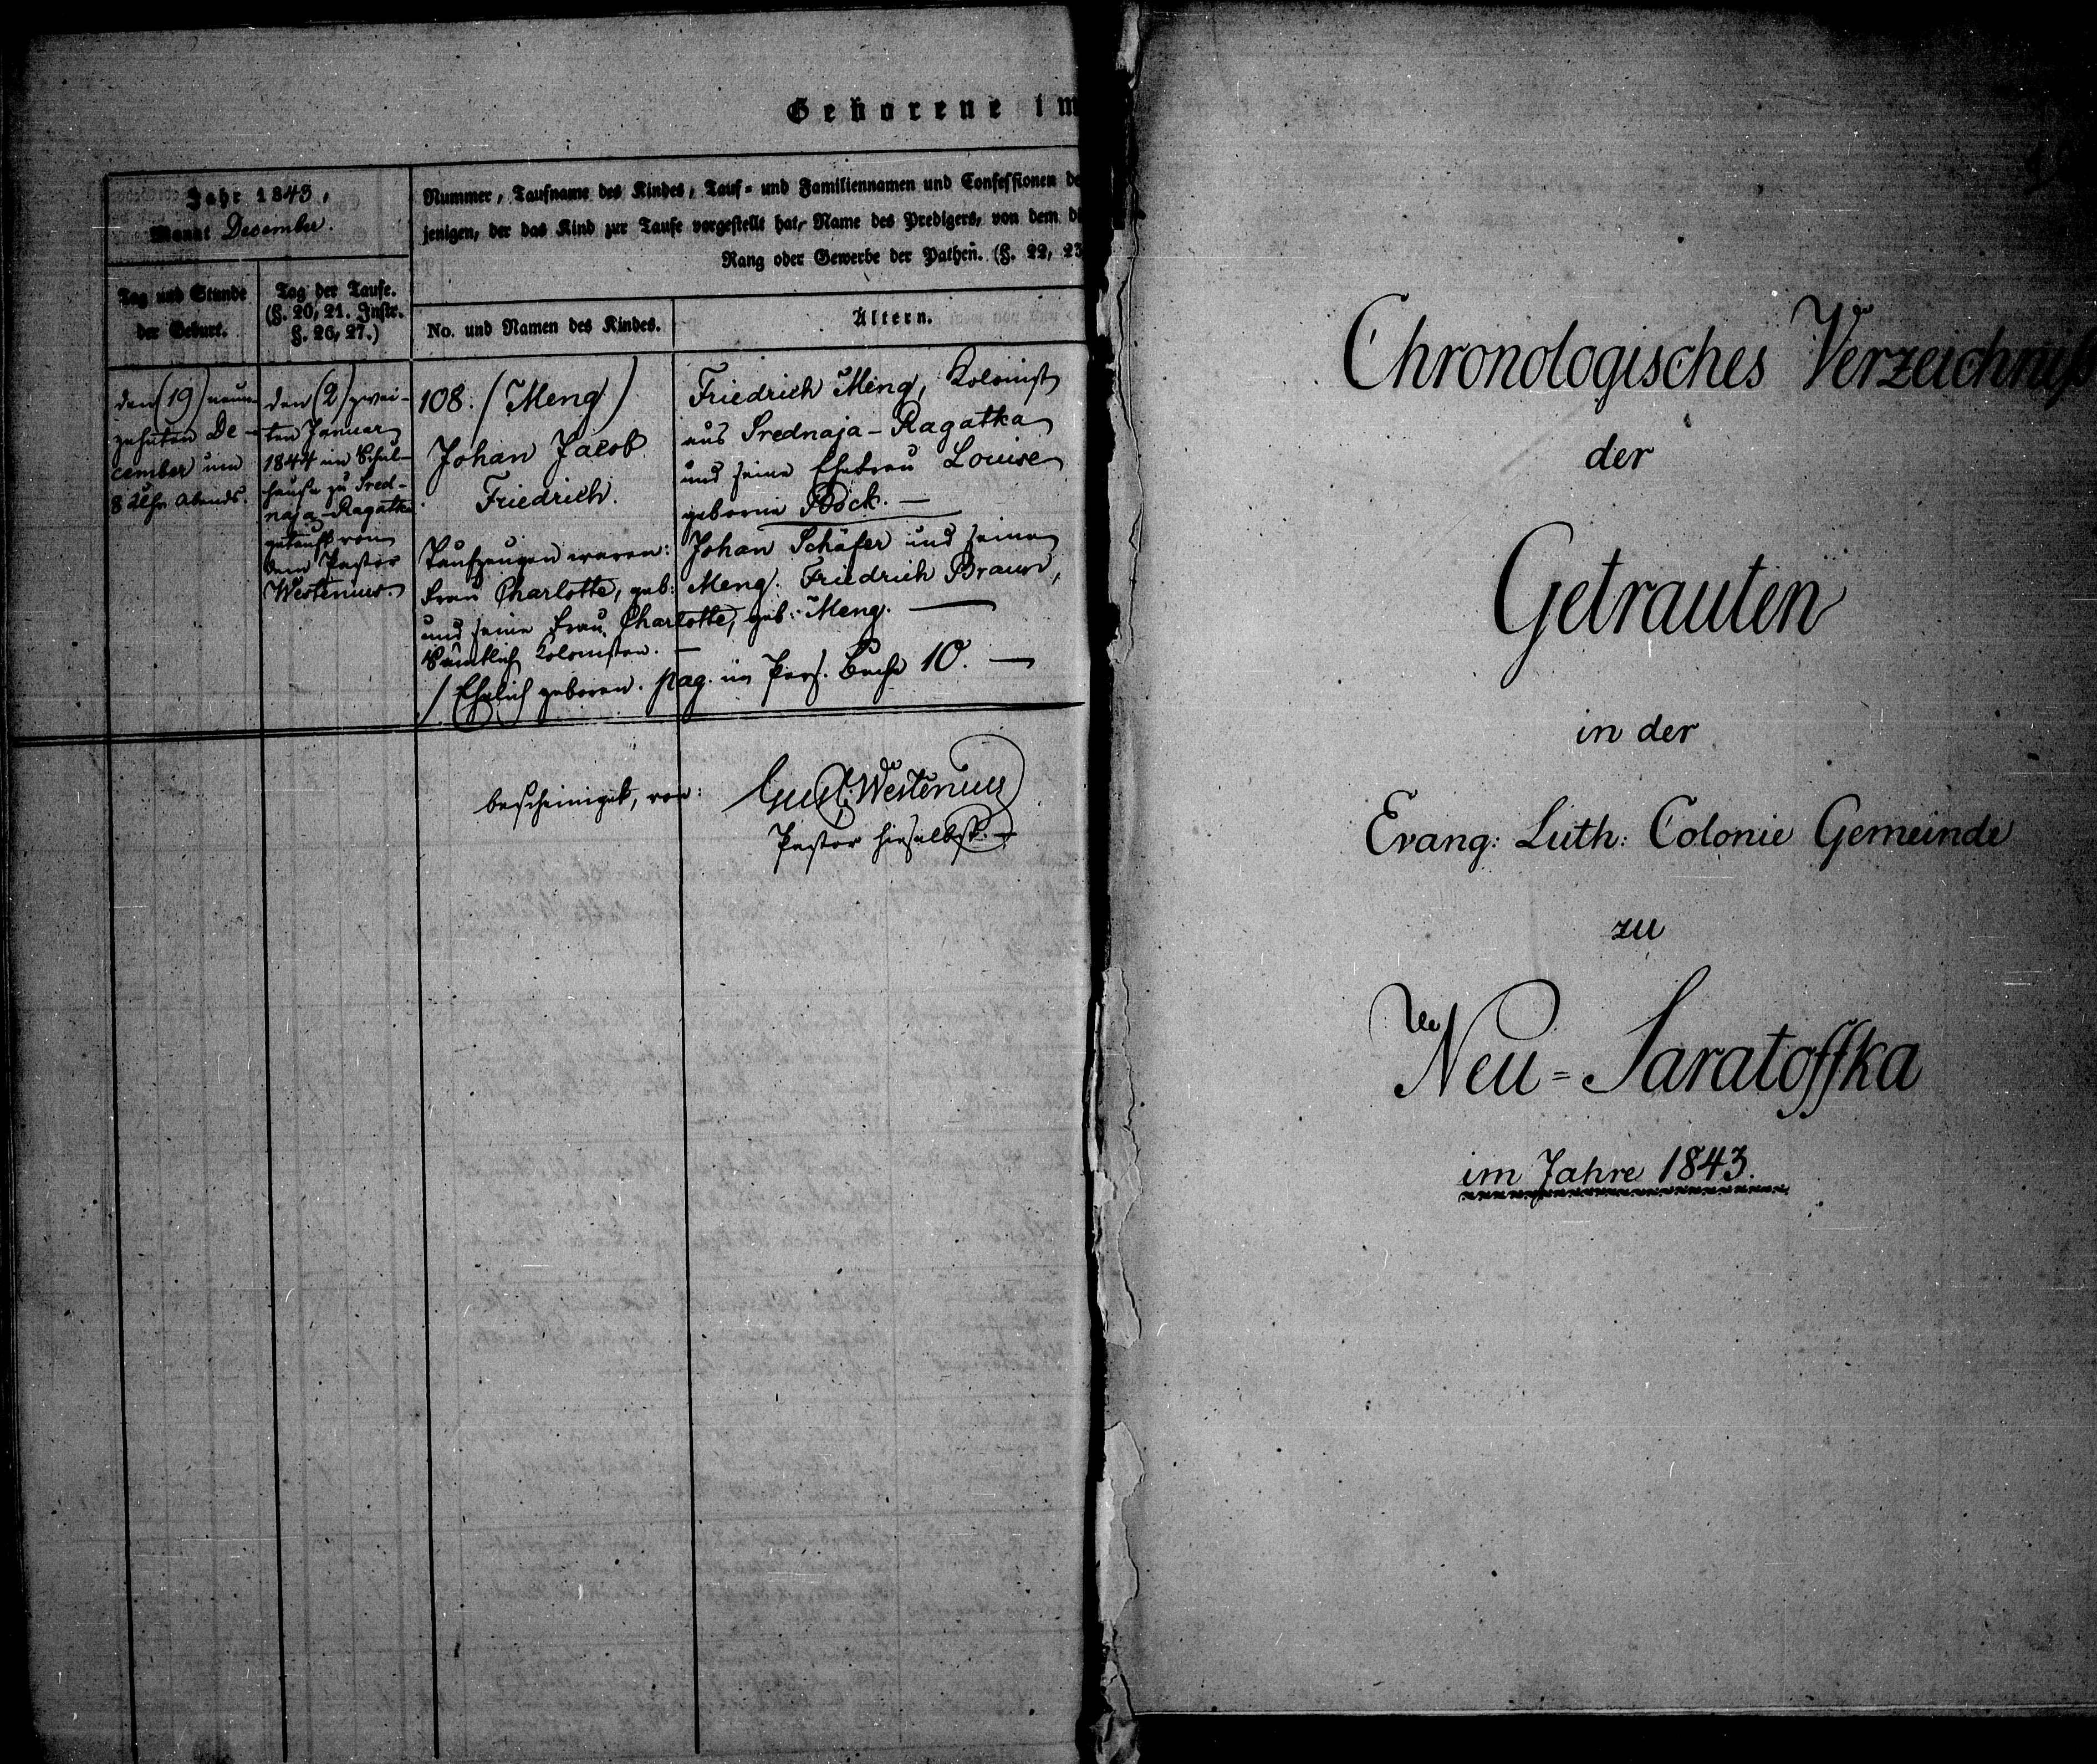 Geborene im
Jahr 1843,
Monat December.
Nummer, Taufname des Kindes, Tauf- und Familiennamen und Confessionen de
jenigen, der das Kind zur Taufe vorgestellt hat, Name des Predigers, von dem di
Rang oder Gewerbe der Pathen. (§. 22, 23
Tag und Stunde
der Geburt.
Tag der Taufe.
(§. 20, 21. Instr.
§. 26, 27.)
No. und Namen des Kindes.
Ältern.
den (19) neun-
zehnten De-
cember um
8 Uhr Abends.
den (2) zwei-
ten Januar
1844 im Schul-
hause zu Sred-
naja-Ragatka
getauft von
dem Pastor
Westenius.
108. (Meng)
Johan Jacob
Friedrich.
Friedrich Meng, Kolonist
aus Srednaja-Ragatka
und seine Ehefrau Louise
geborne Bock. —
Taufzeugen waren: Johan Schäfer und seine
Frau Charlotte, geb: Meng. Friedrich Braun,
und seine Frau Charlotte, geb: Meng. —
Sämtlich Kolonisten. —
/ Ehelich geboren. pag. im Pers. Buche 10. —
bescheinigt, von: Gust. Westenius
Pastor hieselbst. —
Chronologisches Verzeichniß
der
Getrauten
in der
Evang: Luth: Colonie Gemeinde
zu
Neu=Saratoffka
im Jahre 1843.